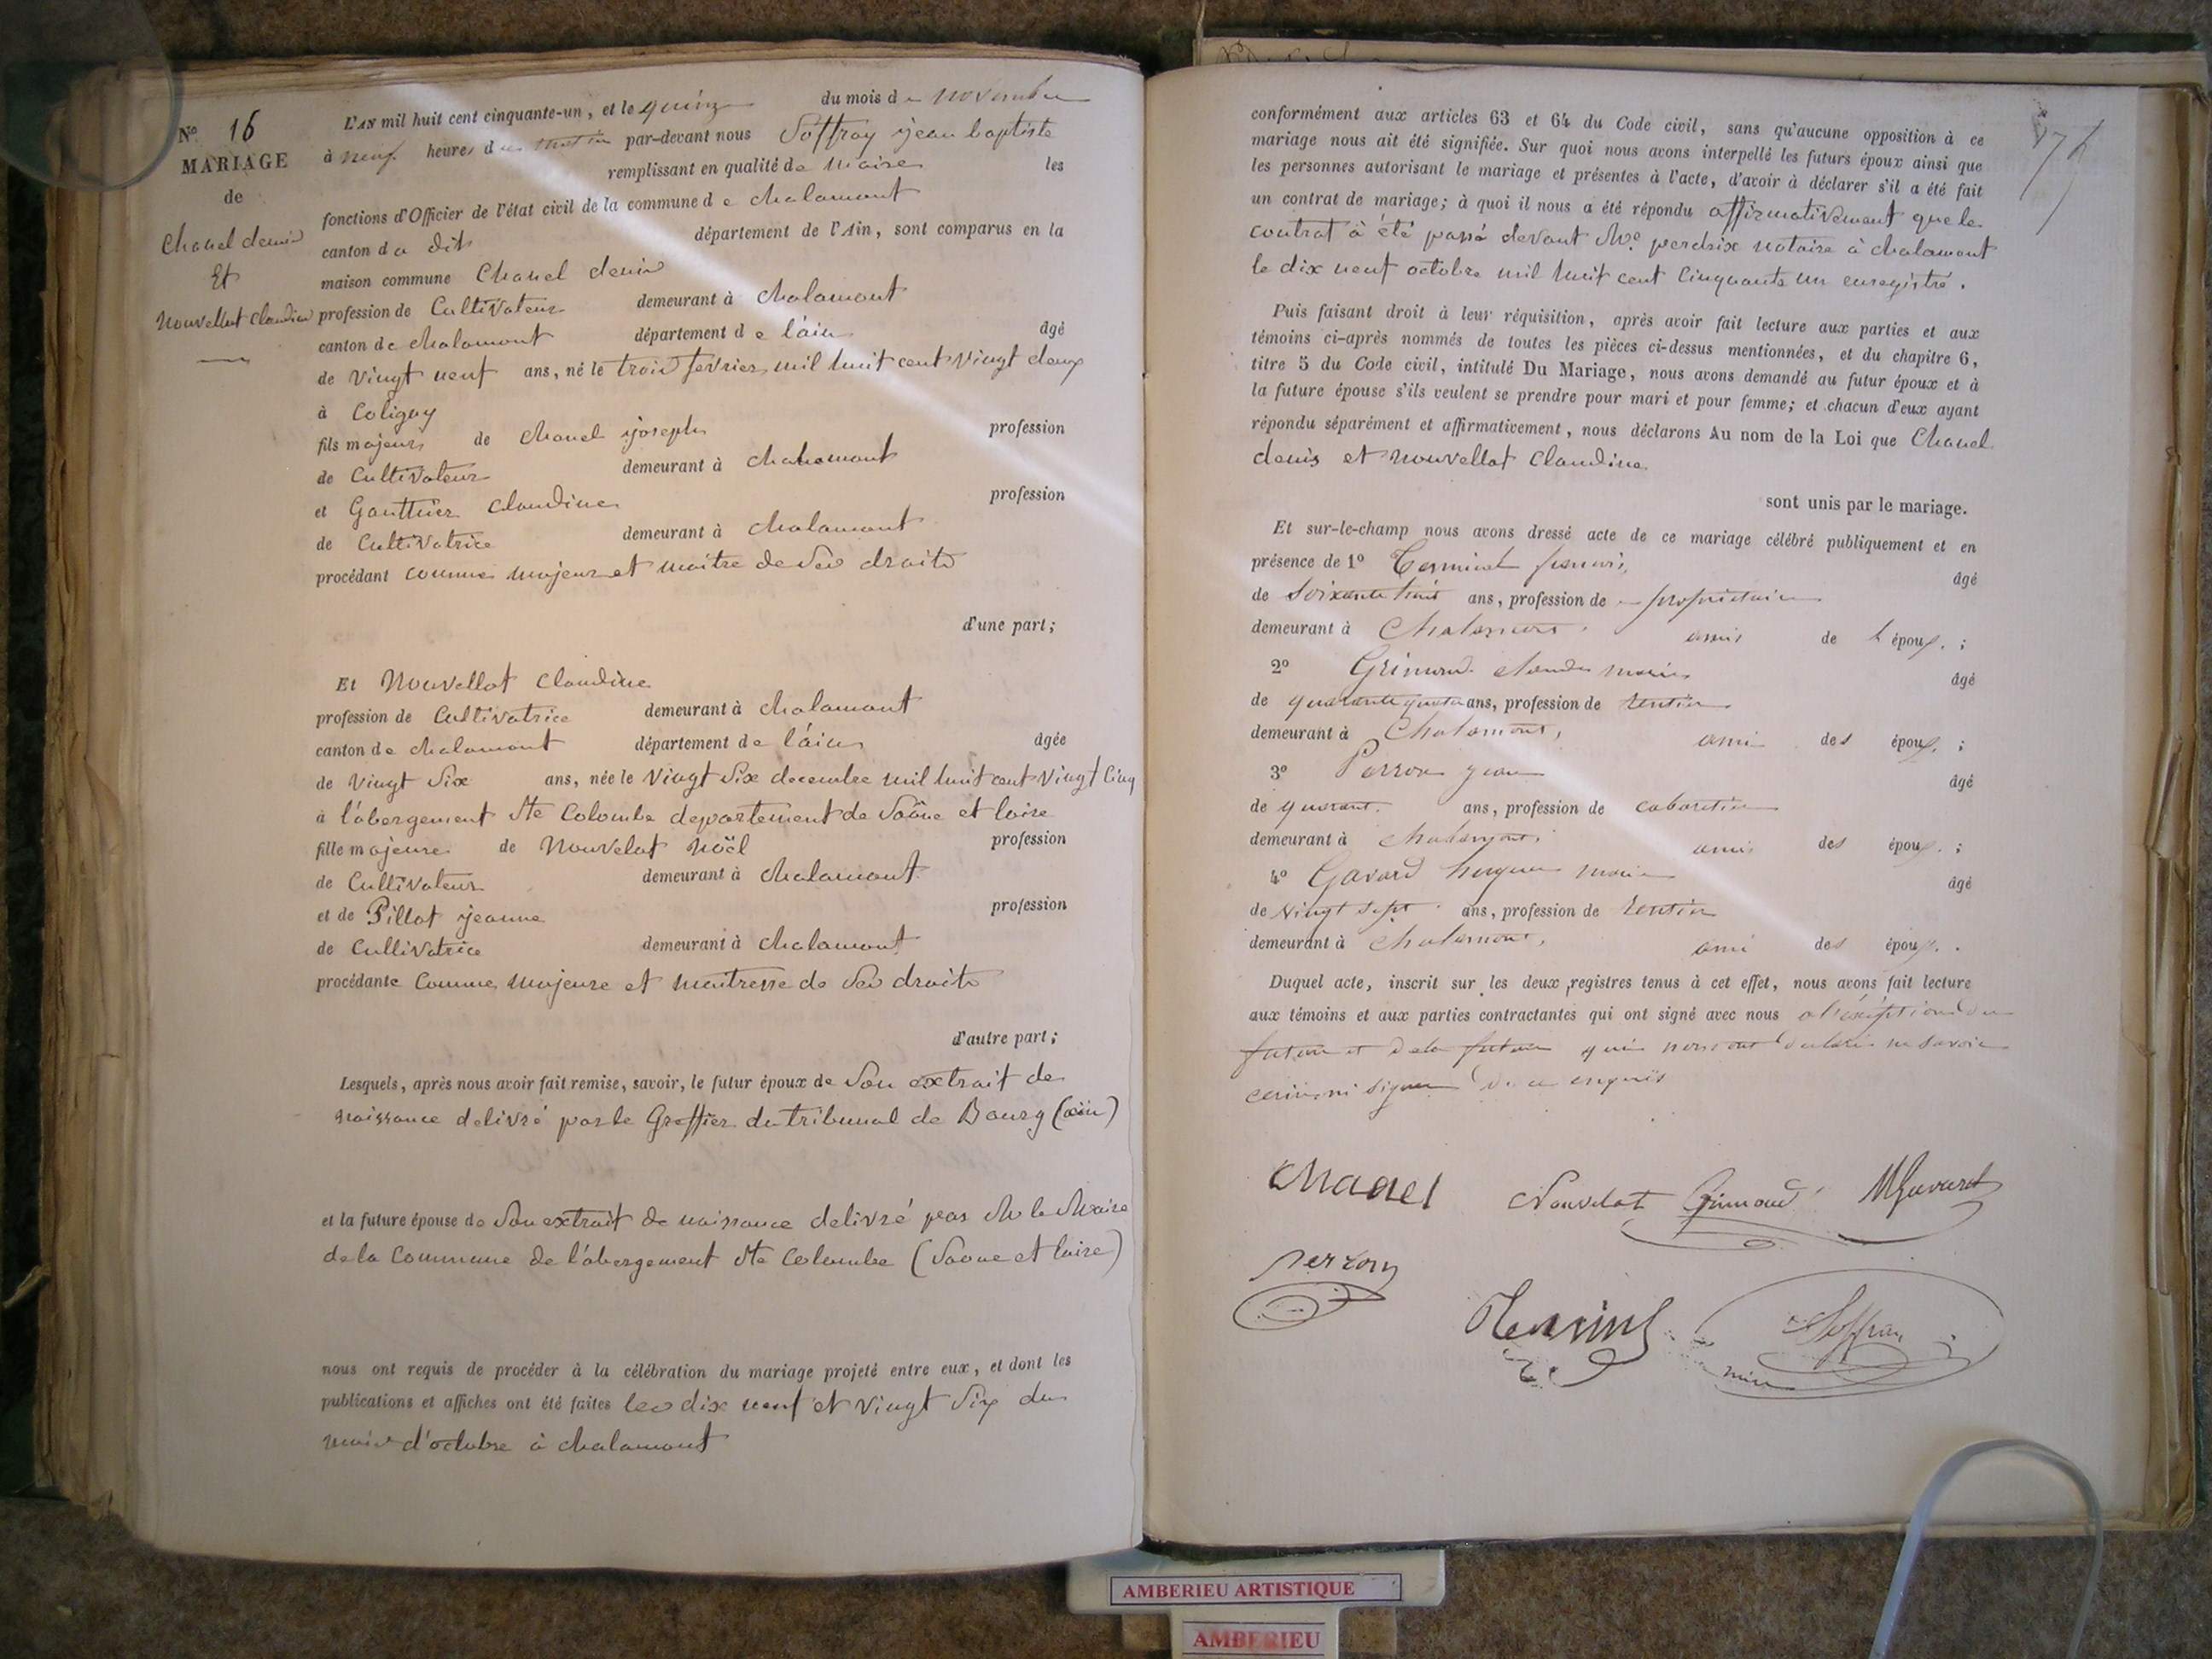 N° 16
MARIAGE
de
Chanel denis
Et
Nouvellot Claudine
L'AN mil huit cent cinquante-un, et le quinze du mois de novembre
à neuf heures du matin par-devant nous Soffray jean baptiste
remplissant en qualité de maire les
fonctions d'Officier de l'état civil de la commune de chalamont
canton du dit département de l'Ain, sont comparus en la
maison commune Chanel denis
profession de Cultivateur demeurant à chalamont
canton de chalamont département de l'ain âgé
de vingt neuf ans, né le trois fevrier mil huit cent vingt deux
à Coligny
fils majeur de chanel joseph profession
de Cultivateur demeurant à chalamont
et Gauthier Claudine profession
de Cultivatrice demeurant à chalamont
procédant comme majeur et maitre de ses droits
d'une part;
Et Nouvellot Claudine
profession de Cultivatrice demeurant à chalamont
canton de chalamont département de l'ain âgée
de vingt six ans, née le vingt six decembre mil huit cent vingt cinq
à l'abergement Ste Colombe departement de Saône et loire
fille majeure de Nouvelot Noël profession
de Cultivateur demeurant à chalamont
et de Pillot jeanne profession
de Cultivatrice demeurant à chalamont
procédante comme majeure et maitresse de ses droits
d'autre part;
Lesquels, après nous avoir fait remise, savoir, le futur époux de son extrait de
naissance delivré par le Greffier du tribunal de Bourg (ain)
et la future épouse de son extrait de naissance delivré par Mr le Maire
de la Commune de l'abergement Ste Colombe (Saone et loire)
nous ont requis de procéder à la célébration du mariage projeté entre eux, et dont les
publications et affiches ont été faites les dix neuf et vingt six du
mois d'octobre à chalamont
conformément aux articles 63 et 64 du Code civil, sans qu'aucune opposition à ce
mariage nous ait été signifiée. Sur quoi nous avons interpellé les futurs époux ainsi que
les personnes autorisant le mariage et présentes à l'acte, d'avoir à déclarer s'il a été fait
un contrat de mariage; à quoi il nous a été répondu affirmativement que le
contrat à été passé devant Me perdrix notaire à chalamont
le dix neuf octobre mil huit cent cinquante un enregistré.
Puis faisant droit à leur réquisition, après avoir fait lecture aux parties et aux
témoins ci-après nommés de toutes les pièces ci-dessus mentionnées, et du chapitre 6,
titre 5 du Code civil, intitulé Du Mariage, nous avons demandé au futur époux et à
la future épouse s'ils veulent se prendre pour mari et pour femme; et chacun d'eux ayant
répondu séparément et affirmativement, nous déclarons Au nom de la Loi que Chanel
denis et Nouvellot Claudine
sont unis par le mariage.
Et sur-le-champ nous avons dressé acte de ce mariage célébré publiquement et en
présence de 1° âgé
de soixante trois ans, profession de propriétaire
demeurant à Chalamont, ami de l époux;
2° Grimaud Claude marie âgé
de quarante quatre ans, profession de rentier
demeurant à Chalamont, ami des époux;
3° Perron jean âgé
de quarante ans, profession de cabaretier
demeurant à chalamont, ami des époux;
4° Gavard hugues marie âgé
de vingt sept ans, profession de rentier
demeurant à Chalamont, ami des époux.
Duquel acte, inscrit sur les deux registres tenus à cet effet, nous avons fait lecture
aux témoins et aux parties contractantes qui ont signé avec nous a l'exception du
futur et de la future qui nous ont déclaré ne savoir
écrire ni signer de ce enquis
Chanel Nouvelot Grimaud MGavard
perron
Soffray
maire
AMBERIEU ARTISTIQUE
AMBERIEU